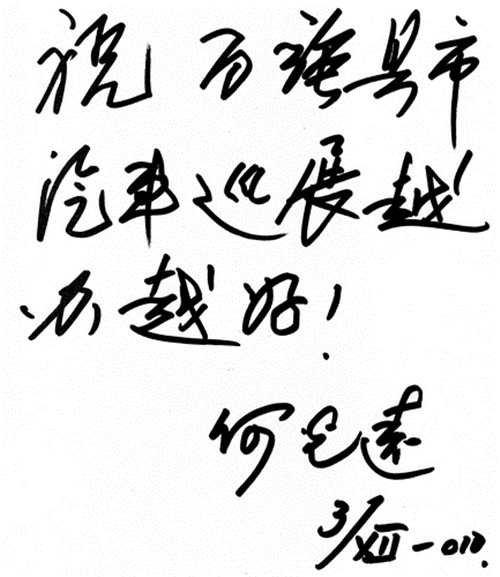 祝百强县市
汽车巡展越
办越好!
何光远
3/XII-010.